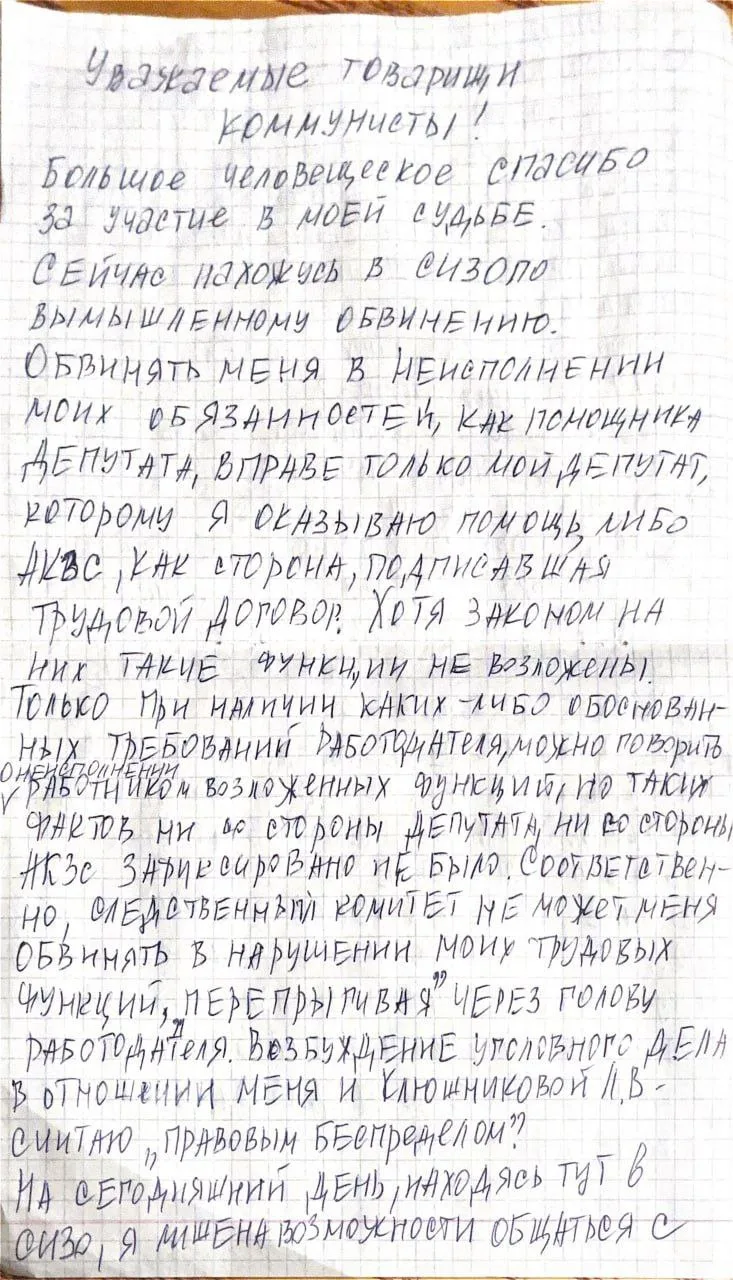 Уважаемые товарищи
коммунисты!
Большое человещеское спасибо
за участие в моей судьбе.
Сейчас нахожусь в СИЗО по
вымышленному обвинению.
Обвинять меня в неисполнении
моих обязанностей, как помощника
депутата, вправе только мой депутат,
которому я оказываю помощь, либо
АКЗС, как сторона, подписавшая
трудовой договор. Хотя законом на
них такие функции не возложены.
Только при наличии каких-либо обоснован-
ных требований работодателя, можно говорить
о неисполнении
√ работником возложенных функций, но таких
фактов ни со стороны депутата, ни со стороны
АКЗС зафиксировано не было. Соответствен-
но, следственный комитет не может меня
обвинять в нарушении моих трудовых
функций, „перепрыгивая” через голову
работодателя. Возбуждение уголовного дела
в отношении меня и Клюшниковой Л.В -
считаю „правовым беспределом”.
На сегодняшний день, находясь тут в
СИЗО, я лишена возможности общаться с